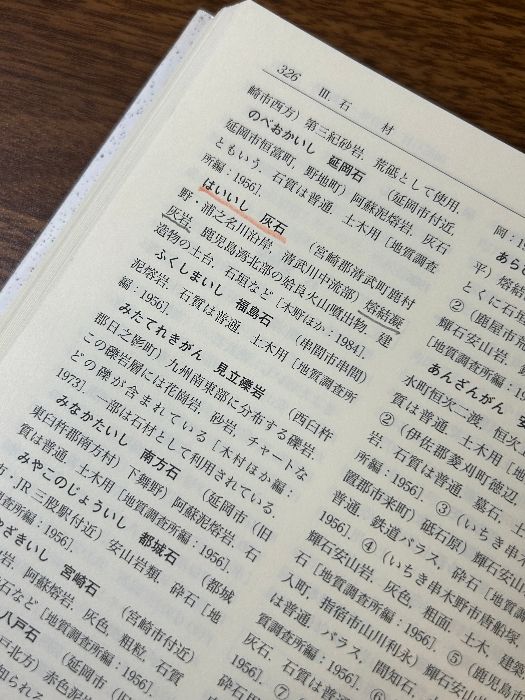 326 III. 石 材
崎市西方) 第三紀砂岩, 荒砥として使用.
のべおかいし 延岡石 (延岡市付近,
延岡市恒富町, 野地町) 阿蘇泥熔岩, 灰石
ともいう, 石質は普通, 土木用 [地質調査
所編:1956].
はいいし 灰石 (宮崎郡清武町鹿村
野・浦之名川沿岸, 清武川中流部) 熔結凝
灰岩, 鹿児島湾北部の姶良火山噴出物, 建
造物の土台, 石垣など [木野ほか:1984].
ふくしまいし 福島石 (串間市串間)
泥熔岩, 石質は普通, 土木用 [地質調査所
編:1956].
みたてれきがん 見立礫岩 (西臼杵
郡日之影町) 九州南東部に分布する礫岩,
この礫岩層には花崗岩, 砂岩, チャートな
どの礫が含まれている [木村ほか編:
1973]. 一部は石材として利用されている.
みなかたいし 南方石 (延岡市 (旧
東臼杵郡南方村) 下舞野) 阿蘇泥熔岩, 石
質は普通, 土木用 [地質調査所編:1956].
みやこのじょういし 都城石 (都城
市, JR三股駅付近) 安山岩類, 砕石 [地
調査所編:1956].
やざきいし 宮崎石 (宮崎市付近)
岩, 阿蘇熔岩, 灰色, 粗粒, 石質
石など [地質調査所編:1956].
八戸石 (延岡市 (旧
戸北方) 赤色泥岩
知られる
岡:
あら
平) 熔結
とくに石垣
② (鹿屋市
輝石安山岩,
[地質調査
あんざんがん 安
水町恒次二渡, 恒次
質は普通, 墓石, 土
② (伊佐郡菱刈町徳辺,
岩, 石質は普通, 土木用
所編:1956]. ③ (いちき串
置郡市来町) 砥石原) 輝石安
普通, 鉄道バラス, 砕石 [地質
1956]. ④ (いちき串木野市唐船塚,
輝石安山岩, 灰色, 粗面, 土木, 建築
石 [地質調査所編:1956]. ⑤ (鹿児島
入町, 指宿市山川利永) 輝石安山
は普通, バラス, 間知石,
灰石, 石質は普
砕石